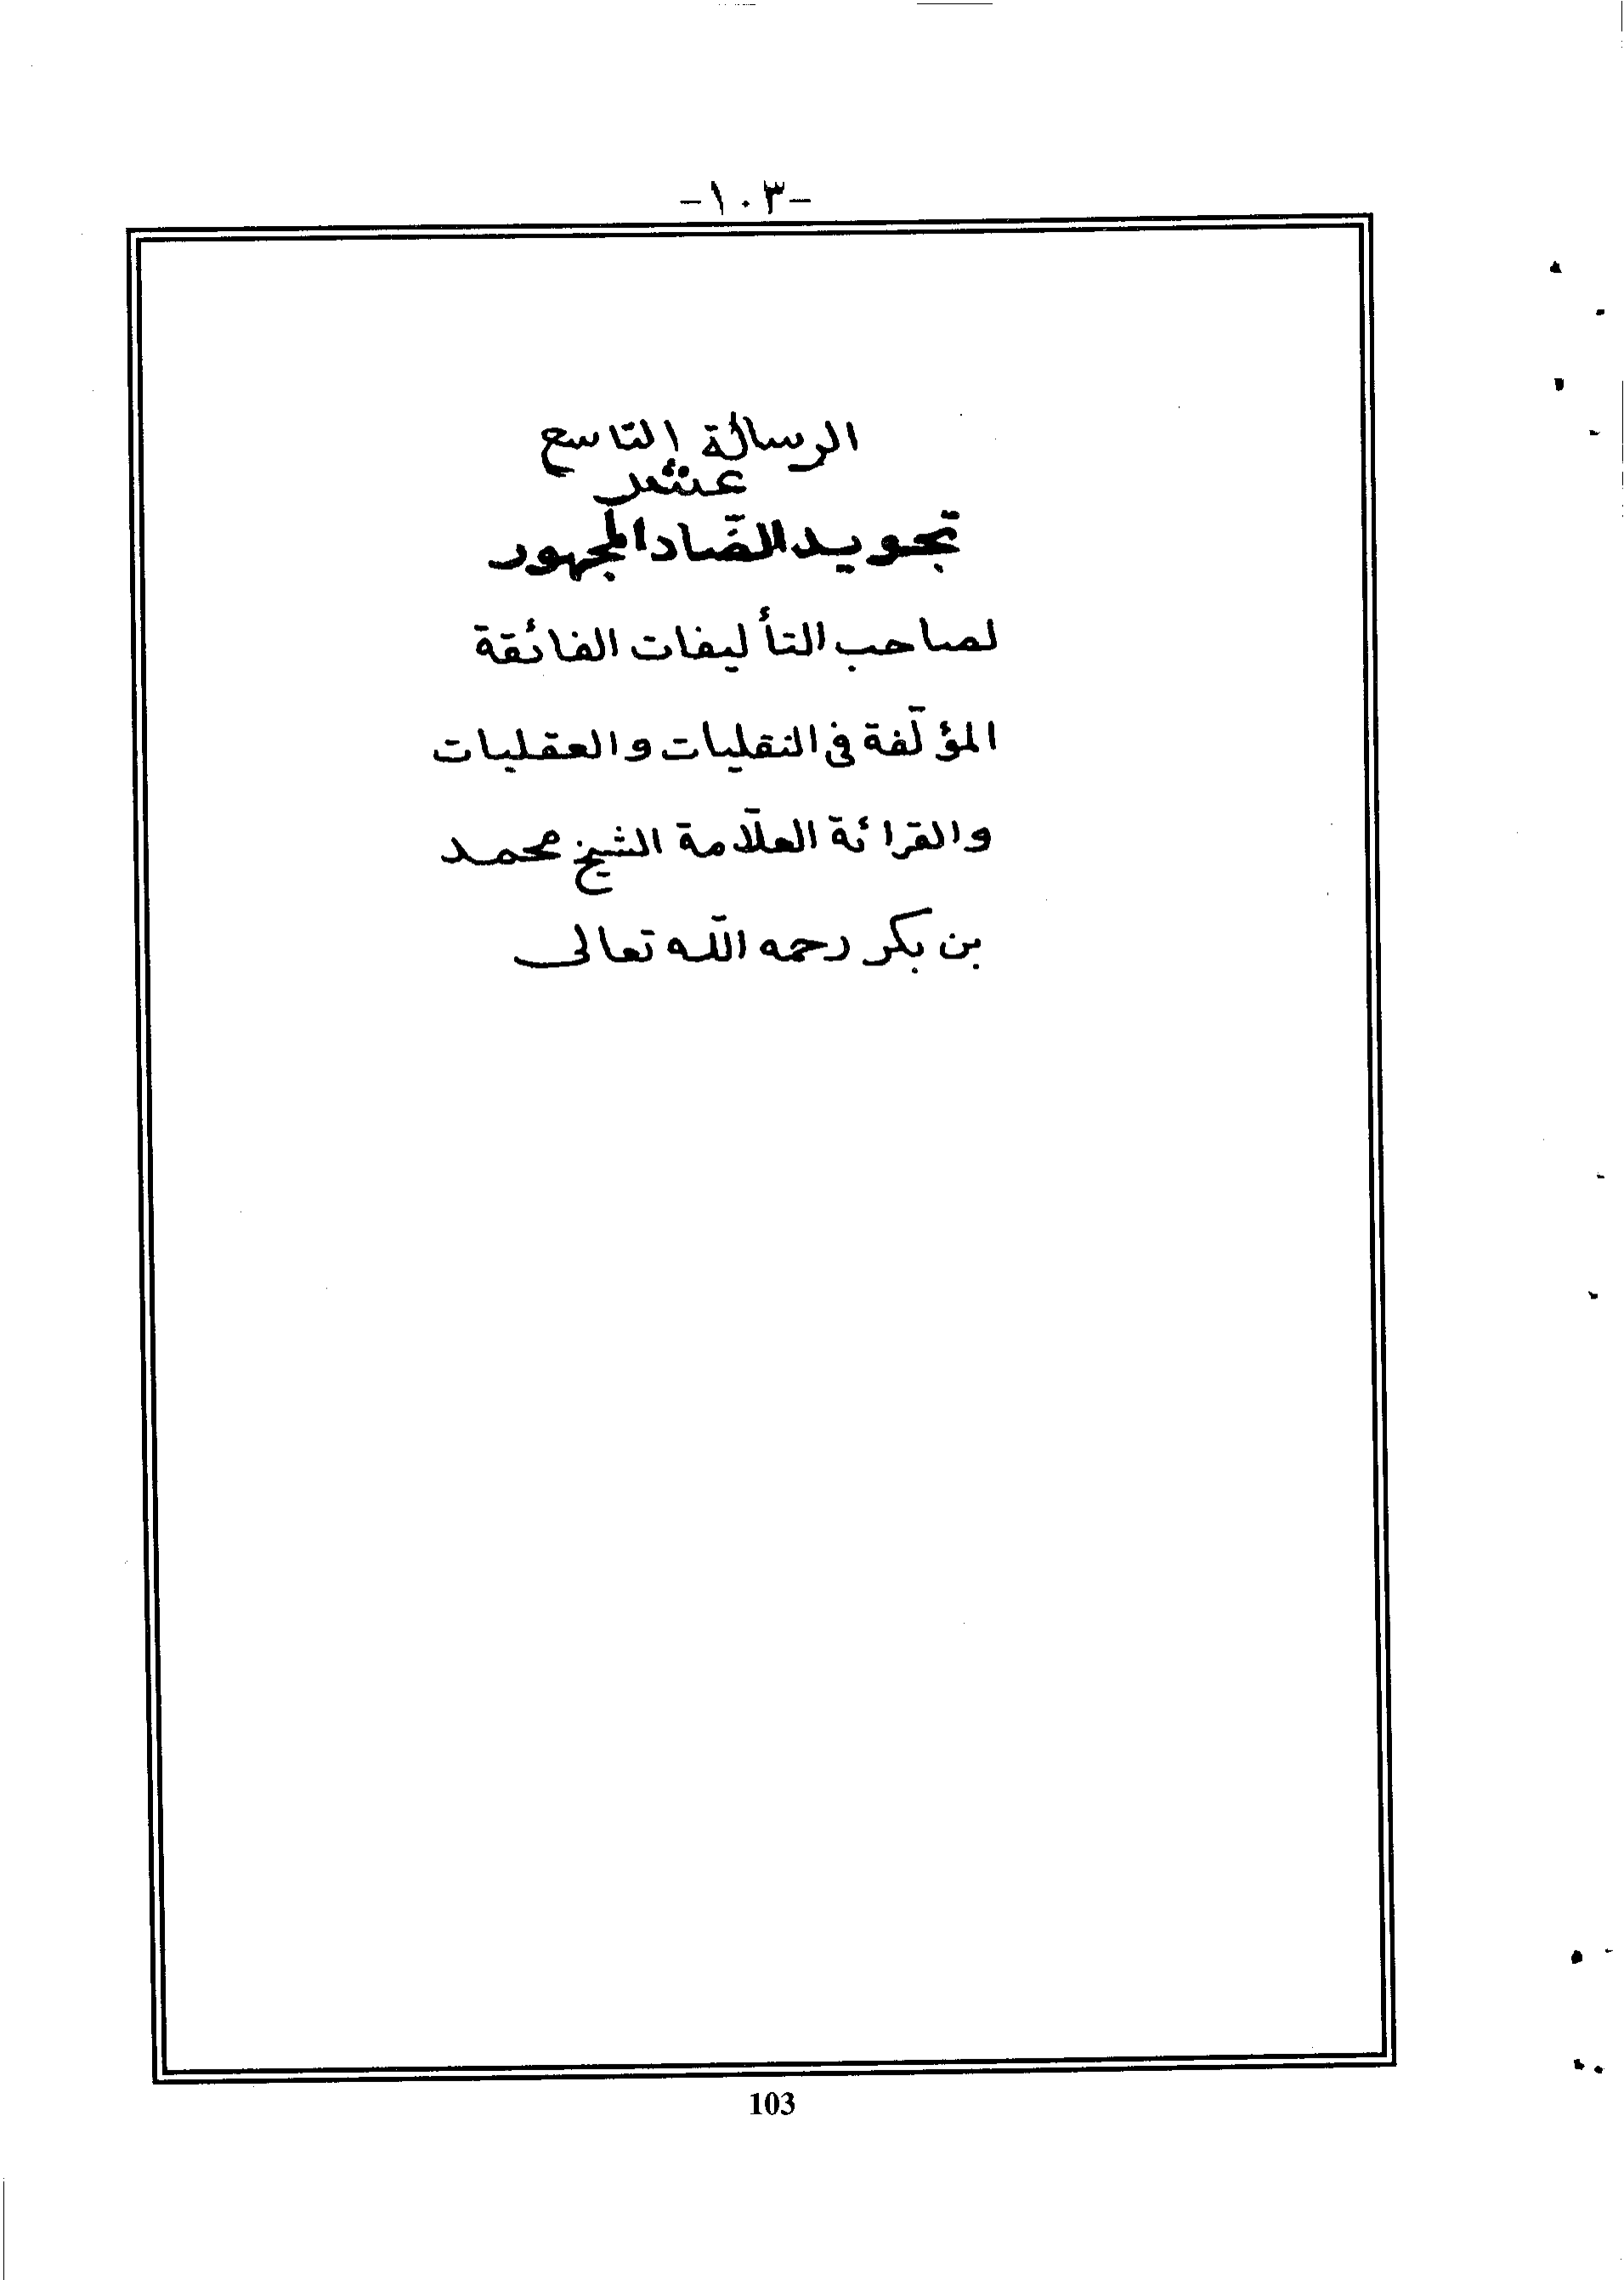 -١٠٣-
الرسالة التاسع
عشر
تجويد الضّاد المجهور
لصاحب التأليفات الفائقة
المؤلّفة في النقليات والعقليات
والقرائة العلّامة الشيخ محمد
بن بكر رحمه اللّه تعالى
103